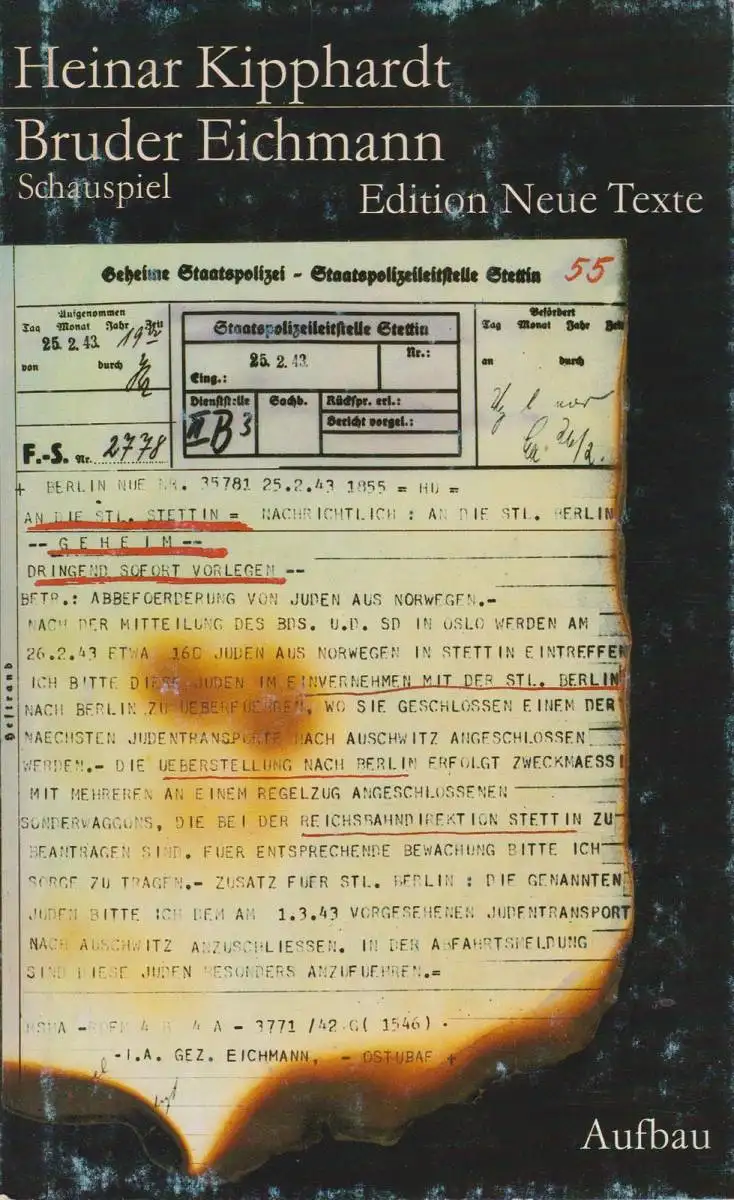 Heinar Kipphardt
Bruder Eichmann
Schauspiel
Edition Neue Texte
Geheime Staatspolizei - Staatspolizeileitstelle Stettin 55
Aufgenommen
Tag Monat Jahr Zeit
25. 2. 43.
von durch
F.-S. Nr. 2778
Staatspolizeileitstelle Stettin
25. 2. 43.
Nr.:
Eing.:
Dienststelle
Sachb.
Rückspr. erl.:
Bericht vorgel.:
II B 3
Befördert
Tag Monat Jahr Zeit
an durch
+ BERLIN NUE NR. 35781 25.2.43 1855 = HU =
AN DIE STL. STETTIN = NACHRICHTLICH : AN DIE STL. BERLIN
-- G E H E I M --
DRINGEND SOFORT VORLEGEN --
BETR.: ABBEFOERDERUNG VON JUDEN AUS NORWEGEN.-
NACH DER MITTEILUNG DES BDS. U.D. SD IN OSLO WERDEN AM
26.2.43 ETWA 160 JUDEN AUS NORWEGEN IN STETTIN EINTREFFEN
ICH BITTE DIESE JUDEN IM EINVERNEHMEN MIT DER STL. BERLIN
NACH BERLIN ZU UEBERFUEHREN, WO SIE GESCHLOSSEN EINEM DER
NAECHSTEN JUDENTRANSPORTE NACH AUSCHWITZ ANGESCHLOSSEN
WERDEN.- DIE UEBERSTELLUNG NACH BERLIN ERFOLGT ZWECKMAESSI
MIT MEHREREN AN EINEM REGELZUG ANGESCHLOSSENEN
SONDERWAGGONS, DIE BEI DER REICHSBAHNDIREKTION STETTIN ZU
BEANTRAGEN SIND. FUER ENTSPRECHENDE BEWACHUNG BITTE ICH
SORGE ZU TRAGEN.- ZUSATZ FUER STL. BERLIN : DIE GENANNTEN
JUDEN BITTE ICH DEM AM 1.3.43 VORGESEHENEN JUDENTRANSPORT
NACH AUSCHWITZ ANZUSCHLIESSEN. IN DER ABFAHRTSMELDUNG
SIND DIESE JUDEN BESONDERS ANZUFUEHREN.=
RSHA - 4 B 4 A - 3771 /42 G( 1546) .
-I.A. GEZ. EICHMANN, - OSTUBAF +
Heftrand
Aufbau